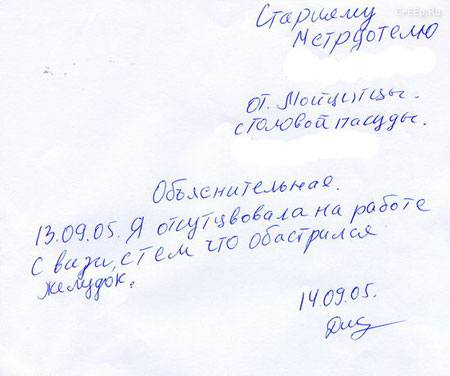 CREEp.Ru
Старшему
Метрдотелю
от. Мойцитцы.
столовой пасуды.
Объяснительная.
13.09.05. Я отсутцвовала на работе
С вязи, с тем что обастрился
желудок.
14.09.05.